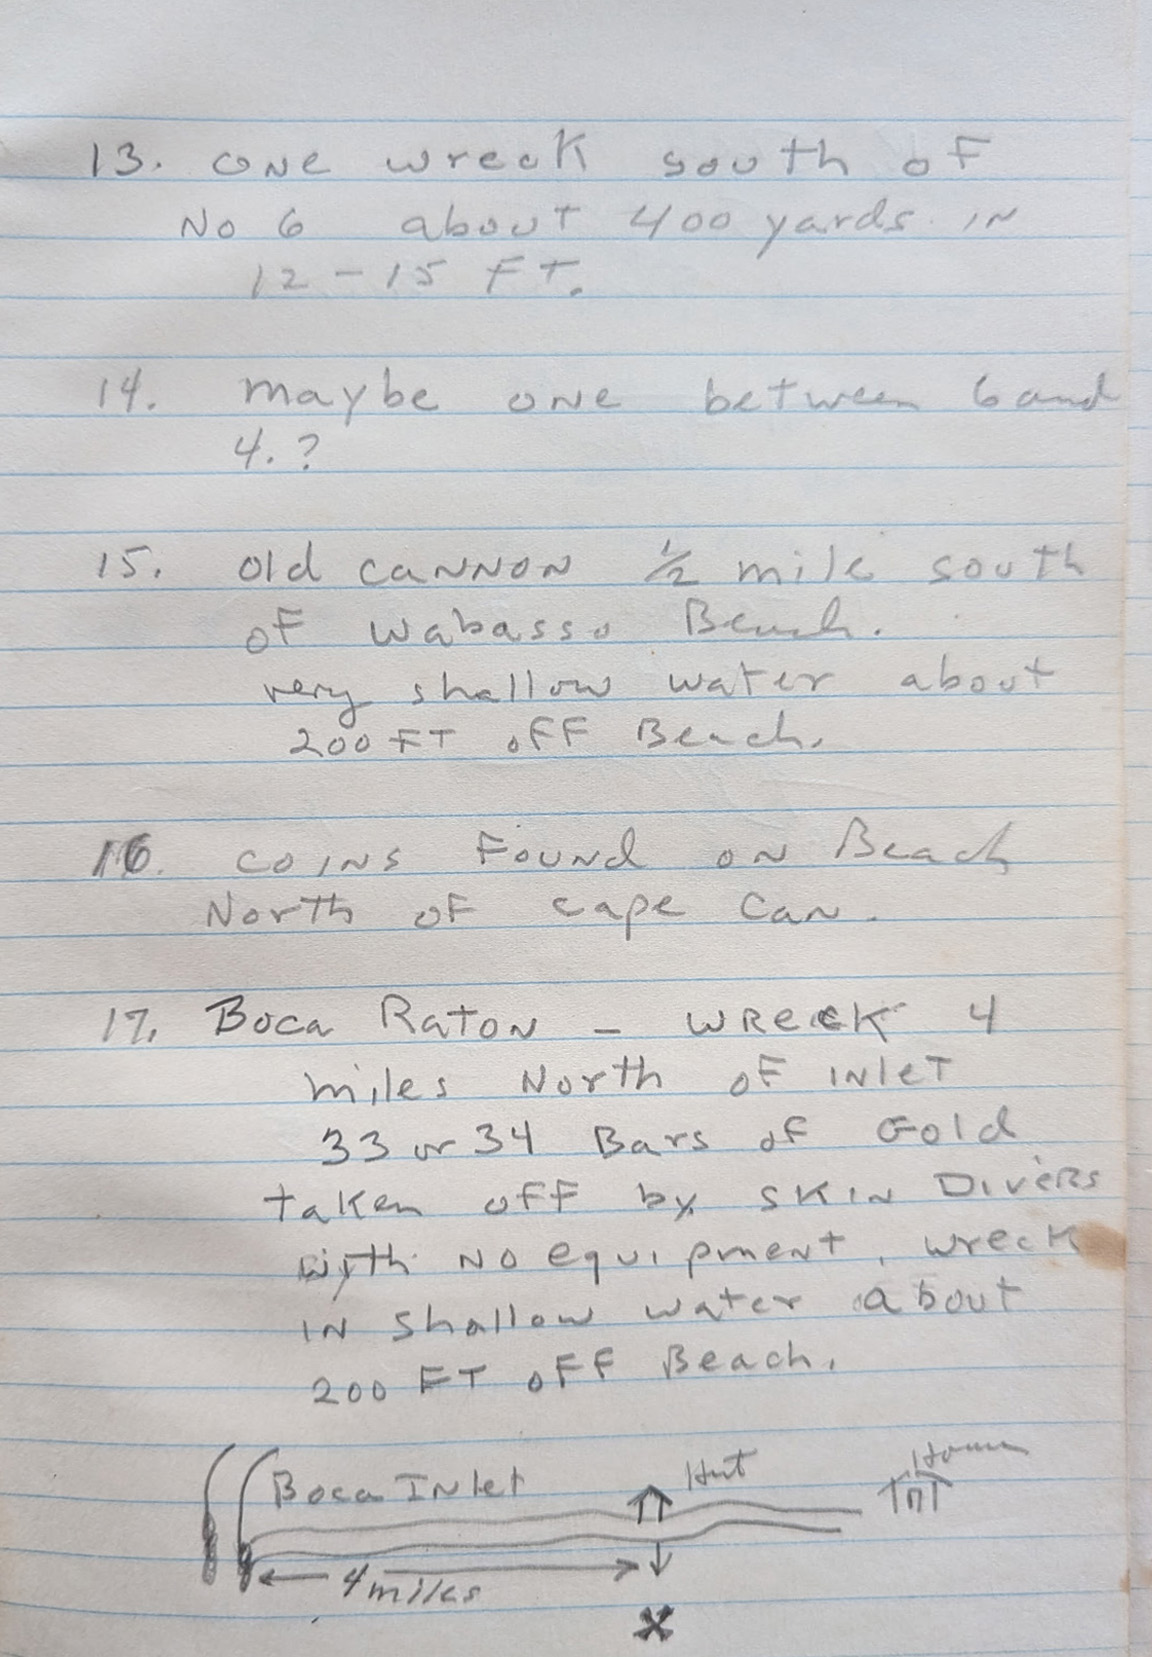 13. one wreck south of
No 6 about 400 yards in
12 - 15 FT.
14. maybe one between 6 and
4. ?
15. old cannon 1/2 mile south
of Wabasso Beach.
very shallow water about
200 FT off Beach.
16. coins Found on Beach
North of cape Can.
17. Boca Raton - wreck 4
miles North of inlet
33 or 34 Bars of Gold
taken off by skin Divers
with no equipment, wreck
in shallow water about
200 FT off Beach.
Boca Inlet
Hut
House
4 miles